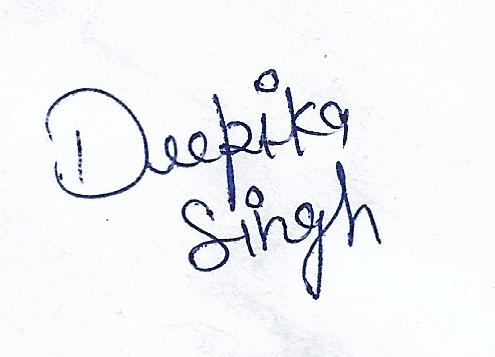 Deepika
Singh